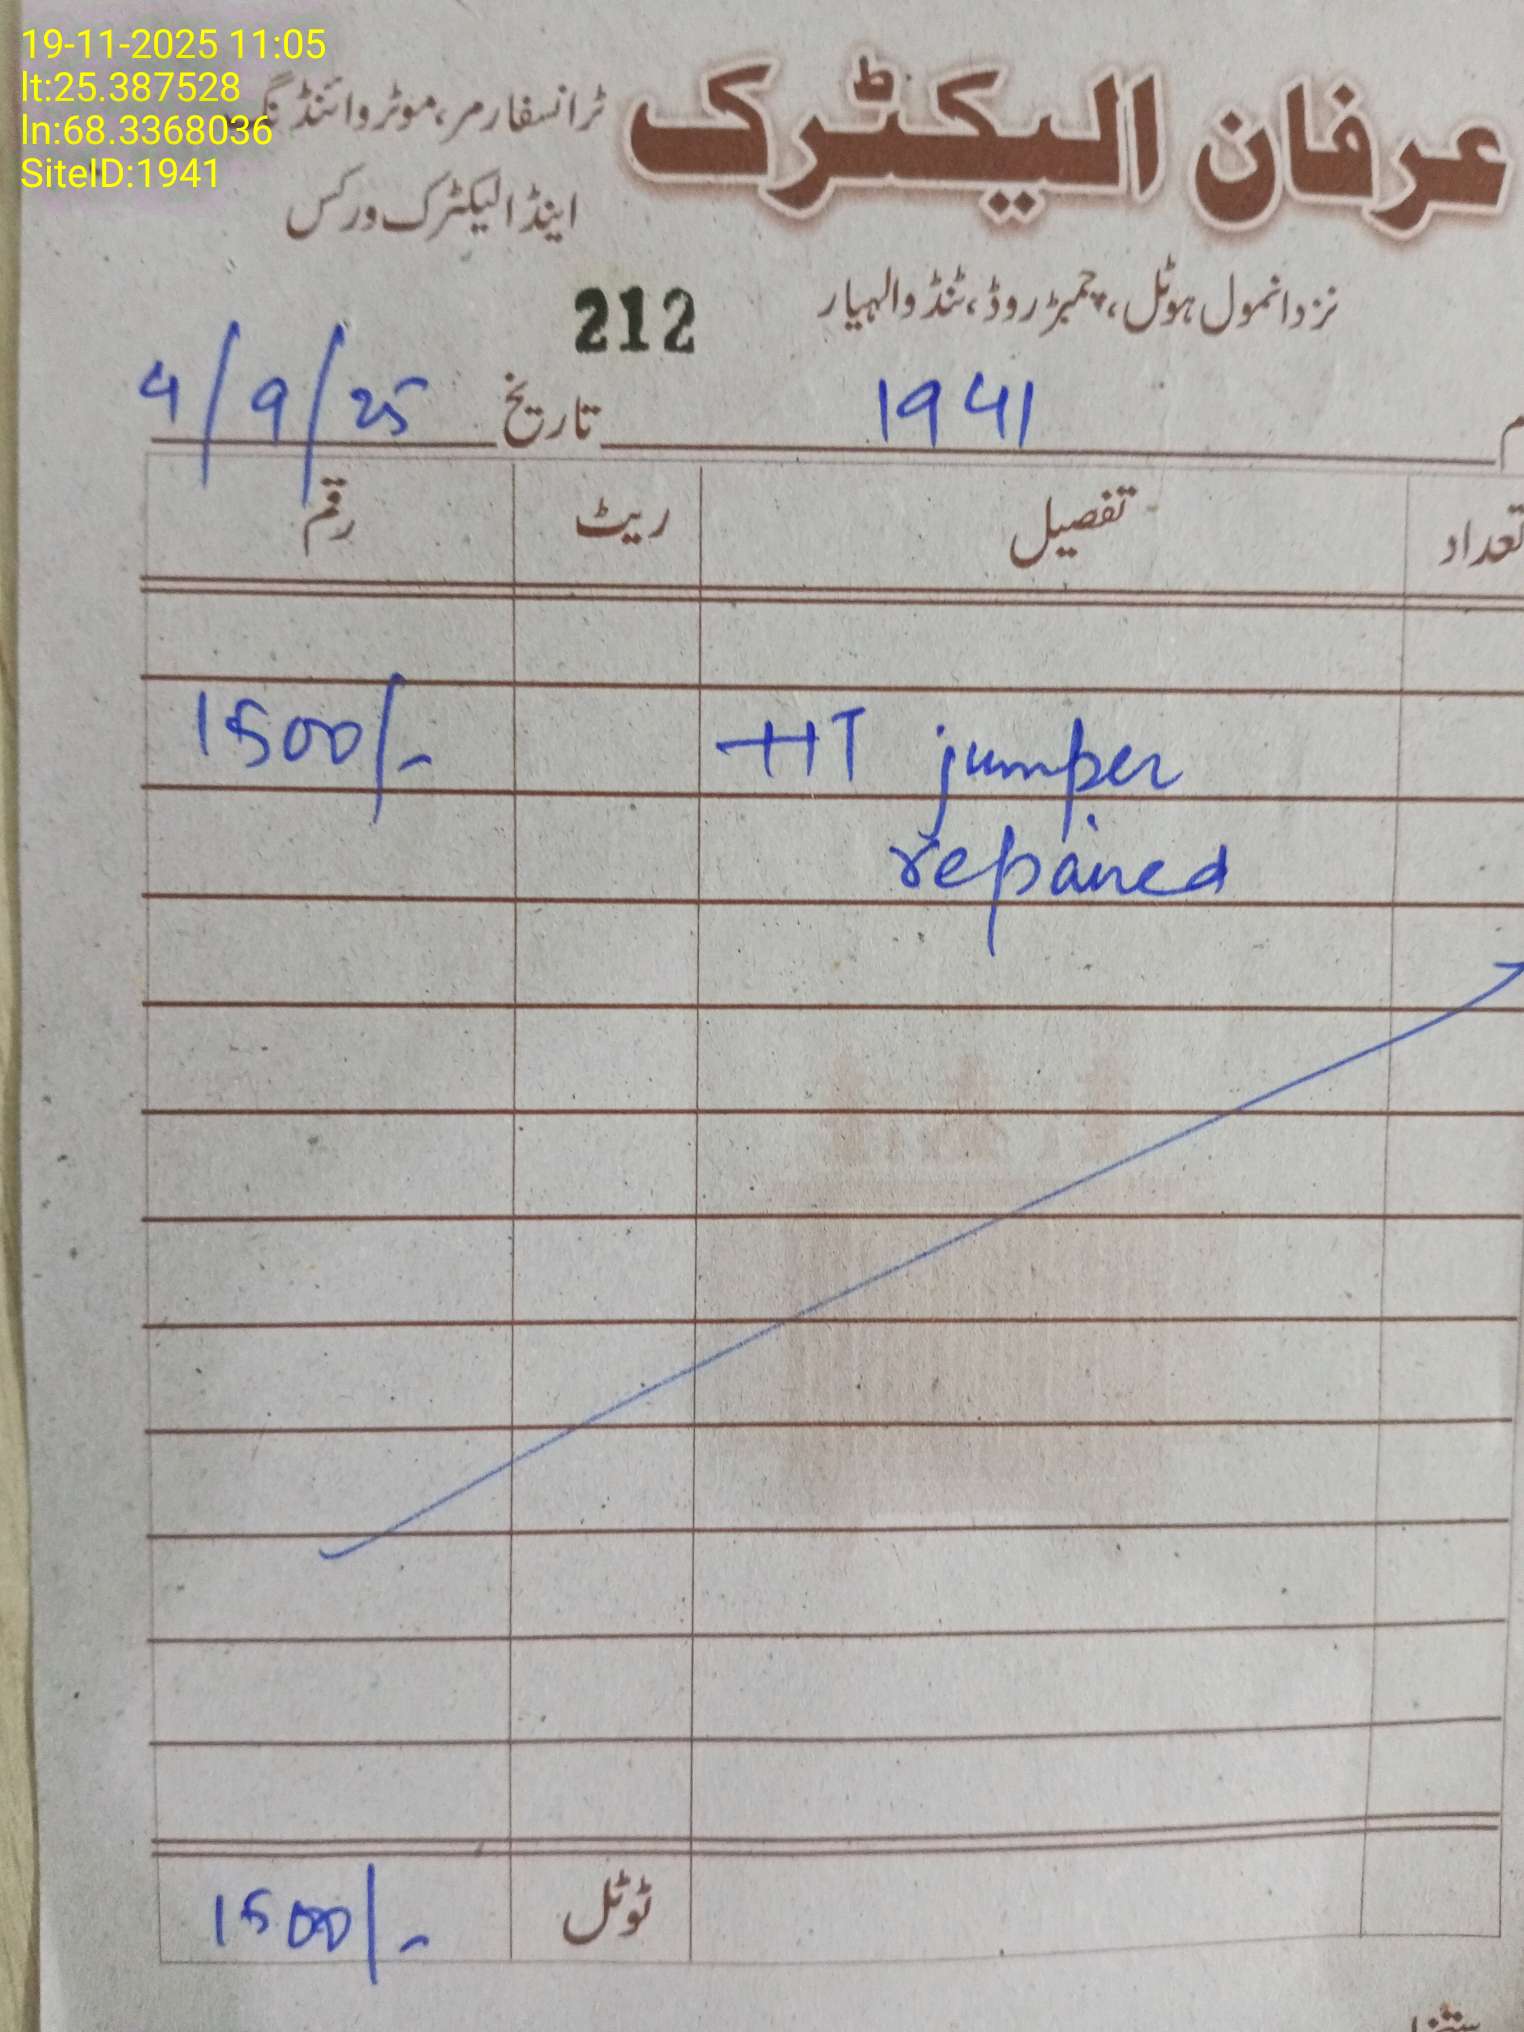 19-11-2025 11:05
lt:25.387528
ln:68.3368036
SiteID:1941
عرفان الیکٹرک
ٹرانسفارمر، موٹر وائنڈنگ
اینڈ الیکٹرک ورکس
نزد انمول ہوٹل، چمبڑ روڈ، ٹنڈوالہیار
212
1941 تاریخ 4/9/25
تعداد تفصیل ریٹ رقم
HT jumper 1500/-
repaired
ٹوٹل 1500/-